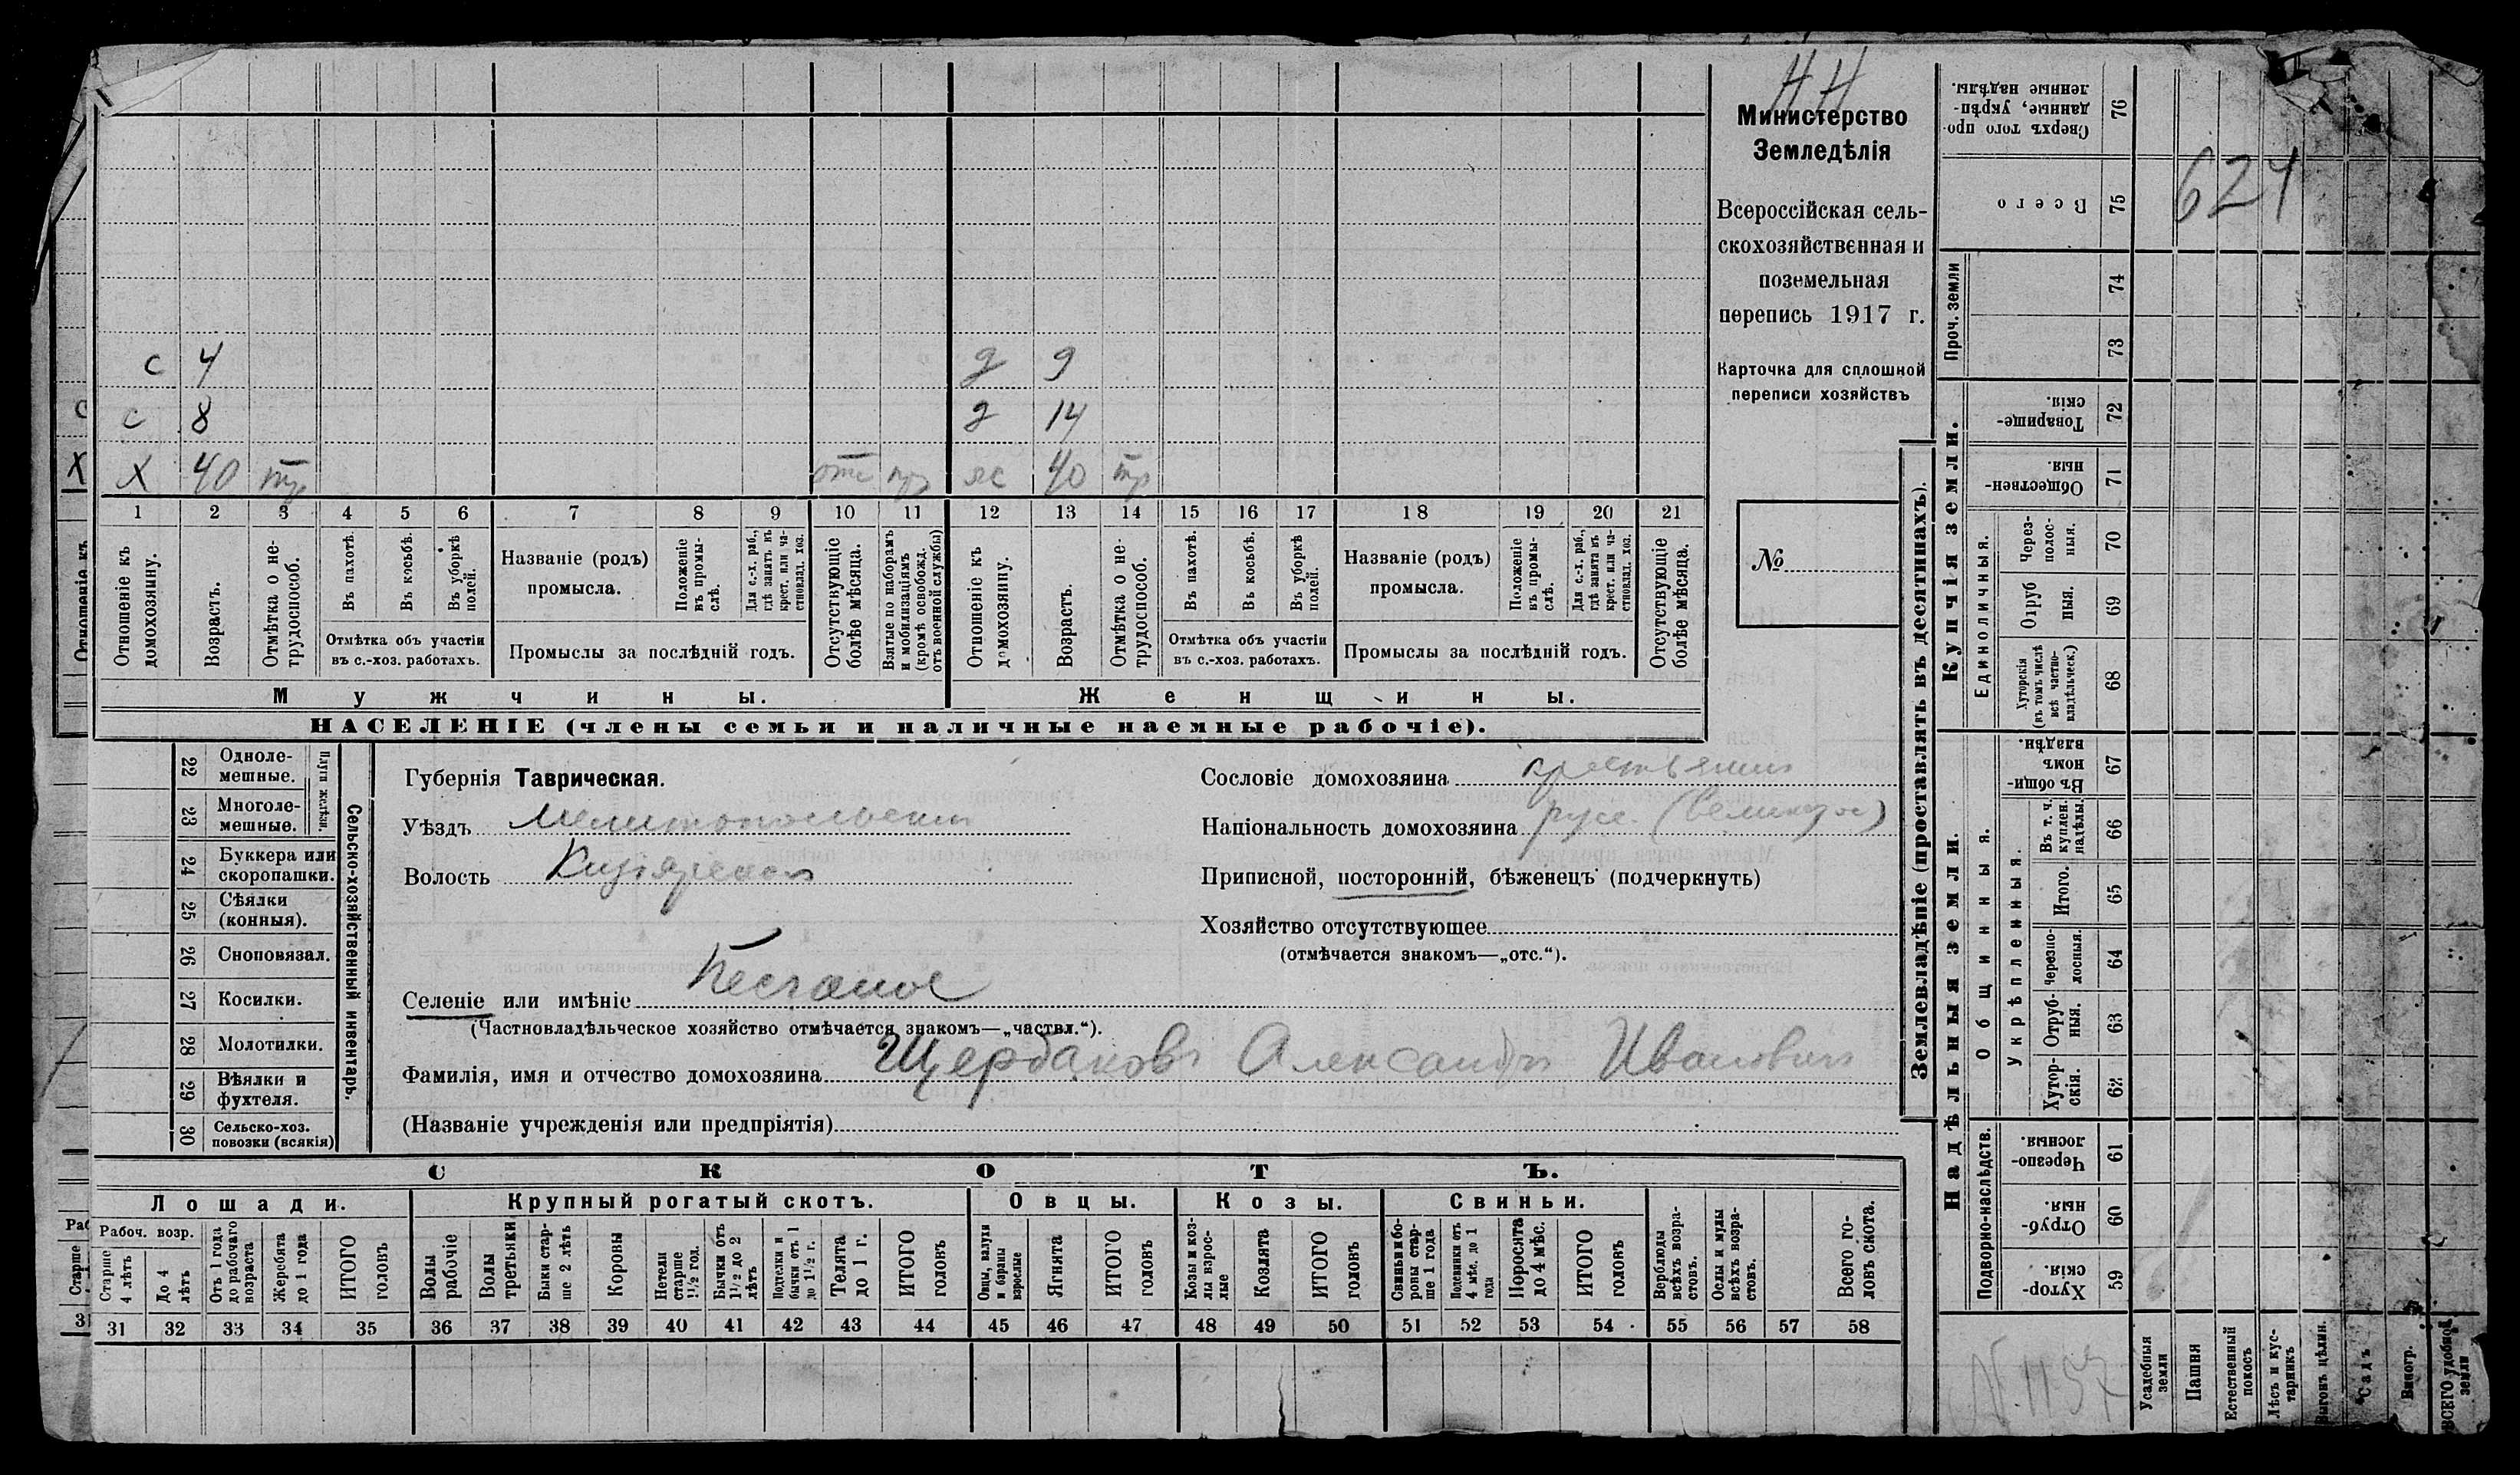 НН
Министерство
Земледѣлія
Всероссійская сель-
скохозяйственная и
поземельная
перепись 1917 г.
Карточка для сплошной
переписи хозяйствъ
№
с 4 д 9
с 8 д 14
Х 40 тр отс пр ж 40 тр
1 2 3 4 5 6 7 8 9 10 11 12 13 14 15 16 17 18 19 20 21
Отношеніе къ домохозяину.
Возрастъ.
Отмѣтка о не-трудоспособ.
Въ пахотѣ.
Въ косьбѣ.
Въ уборкѣ полей.
Отмѣтка объ участіи
въ с.-хоз. работахъ.
Названіе (родъ)
промысла.
Положеніе въ промы-слѣ.
Для с.-х. раб., гдѣ занятъ въ крест. или ча-стновлад. хоз.
Промыслы за послѣдній годъ.
Отсутствующіе болѣе мѣсяца.
Взятые по наборамъ и мобилизаціямъ (кромѣ освобожд. отъ военной службы)
Отношеніе къ домохозяину.
Возрастъ.
Отмѣтка о не-трудоспособ.
Въ пахотѣ.
Въ косьбѣ.
Въ уборкѣ полей.
Отмѣтка объ участіи
въ с.-хоз. работахъ.
Названіе (родъ)
промысла.
Положеніе въ промы-слѣ.
Для с.-х. раб., гдѣ занята въ крест. или ча-стновлад. хоз.
Промыслы за послѣдній годъ.
Отсутствующіе болѣе мѣсяца.
Мужчины. Женщины.
НАСЕЛЕНІЕ (члены семьи и наличные наемные рабочіе).
22 Одноле-мешные.
23 Многоле-мешные.
Плуги желѣзн.
24 Буккера или скоропашки.
25 Сѣялки (конныя).
26 Сноповязал.
27 Косилки.
28 Молотилки.
29 Вѣялки и фухтеля.
30 Сельско-хоз. повозки (всякія)
Сельско-хозяйственный инвентарь.
Губернія Таврическая.
Уѣздъ Мелитопольскій
Волость Кизіярская
Селеніе или имѣніе Песчаное
(Частновладѣльческое хозяйство отмѣчается знакомъ—„частвл.“).
Фамилія, имя и отчество домохозяина Щербаковъ Александръ Ивановичъ
(Названіе учрежденія или предпріятія)
Сословіе домохозяина крестьянинъ
Національность домохозяина русс. (великорос)
Приписной, посторонній, бѣженецъ (подчеркнуть)
Хозяйство отсутствующее
(отмѣчается знакомъ—„отс.“).
СКОТЪ.
Лошади. Крупный рогатый скотъ. Овцы. Козы. Свиньи.
Рабоч. возр.
Старше 4 лѣтъ
До 4 лѣтъ
Отъ 1 года до рабочаго возраста
Жеребята до 1 года
ИТОГО головъ
Волы рабочіе
Волы третьяки
Быки стар-ше 2 лѣтъ
Коровы
Нетели старше 1½ гол.
Бычки отъ 1½ до 2 лѣтъ
Подтелки и бычки отъ 1 до 1½ г.
Телята до 1 г.
ИТОГО головъ
Овцы, валухи и бараны взрослые
Ягнята
ИТОГО головъ
Козы и коз-лы взрос-лые
Козлята
ИТОГО головъ
Свиньи и бо-ровы стар-ше 1 года
Подсвинки отъ 4 мѣс. до 1 года
Поросята до 4 мѣс.
ИТОГО головъ
Верблюды всѣхъ возра-стовъ.
Ослы и мулы всѣхъ возра-стовъ.
Всего го-ловъ скота.
31 32 33 34 35 36 37 38 39 40 41 42 43 44 45 46 47 48 49 50 51 52 53 54 55 56 57 58
Землевладѣніе (проставлять въ десятинахъ).
Купчія земли.
Надѣльныя земли.
Сверхъ того про-данные, укрѣп-ленные надѣлы. 76
Всего 75
624
Проч. земли 74 73
Товарище-скія. 72
Обществен-ныя. 71
Единоличныя.
Через-полос-ныя. 70
Отруб ныя. 69
Хуторскія (въ томъ числѣ всѣ частно-владѣльческ.) 68
Общинныя.
Въ общи-номъ владѣн. 67
Укрѣпленныя.
Въ т. ч. куплен. надѣлы. 66
Итого. 65
Черезпо-лосныя. 64
Отруб-ныя. 63
Хутор-скія. 62
Подворно-наслѣдств.
Черезпо-лосныя. 61
Отруб-ныя. 60
Хутор-скія. 59
N. 1157
Усадебныя земли
Пашня
Естественный покосъ
Лѣсъ и кус-тарникъ
Выгонъ цѣлин.
Садъ
Виногр.
ВСЕГО удобной земли